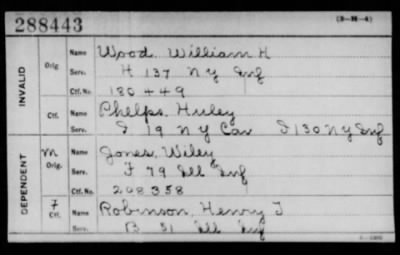 288443 (3-M-4)
INVALID
Orig. Name Wood. William H
Serv. H 137 N Y Inf
Ctf. No. 180449
Ctf. Name Phelps, Huley
Serv. I 19 N Y Cav I 130 N Y Inf
DEPENDENT
M Orig. Name Jones, Wiley
Serv. F 79 Ill Inf
Ctf. No. 208358
F Ctf. Name Robinson, Henry T
Serv. B 51 Ill Inf